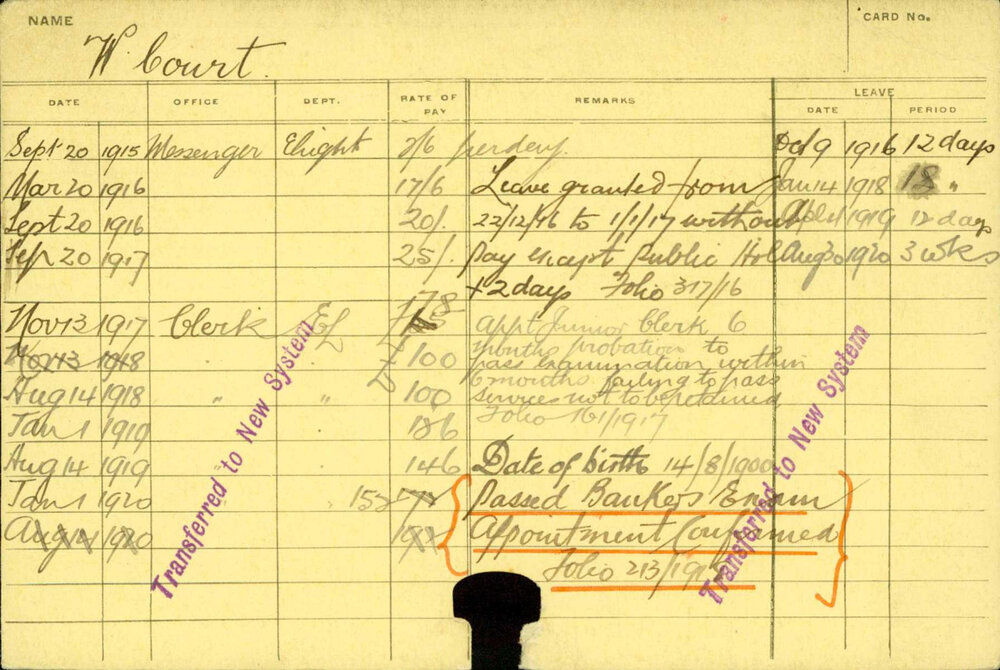 NAME
CARD No.
W. Court.
DATE OFFICE DEPT. RATE OF PAY REMARKS LEAVE DATE PERIOD
Sept 20 1915 Messenger 2/6 per day. Oct 9 1916 12 days
Mar 20 1916 17/6 Leave granted from Jan 14 1918 18 "
Sept 20 1916 20/. 22/12/16 to 1/1/17 without 1919 12 days
Sep 20 1917 25/. pay except Public Hol Aug 30 1920 3 wks
+ 2 days Folio 317/16
Nov 13 1917 Clerk Appt Junior Clerk 6
Nov 13 1918 £100 months probation to
pass examination within
Aug 14 1918 " " 100 6 months failing to pass
services not to be retained
Jan 1 1919 126 Folio 161/1917
Aug 14 1919 146 Date of birth 14/8/1900
Jan 1 1920 152 Passed Bankers Exam
Aug 14 1920 Appointment Confirmed
Folio 213/19
Transferred to New System
Transferred to New System